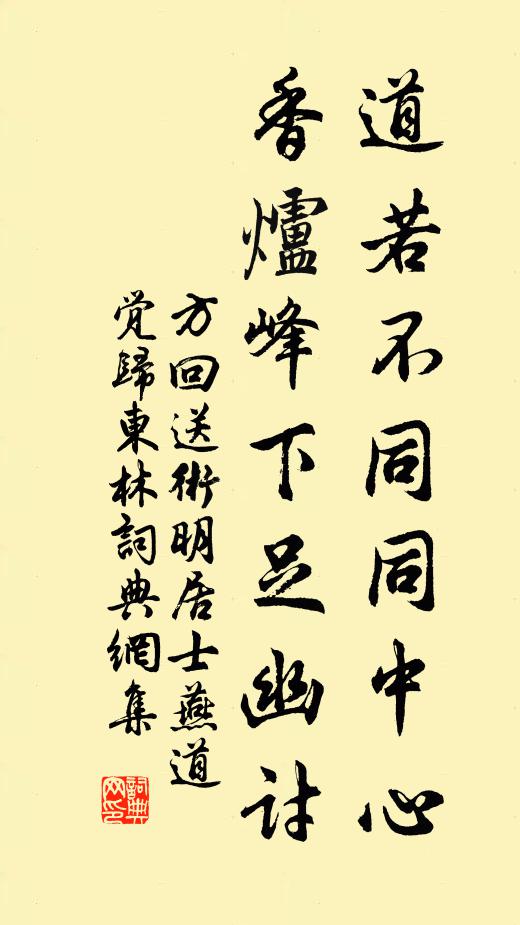 道若不同同中心
香爐峰下足幽討
方回送術明居士燕道
覚歸東林詞典網集
詞典
网印